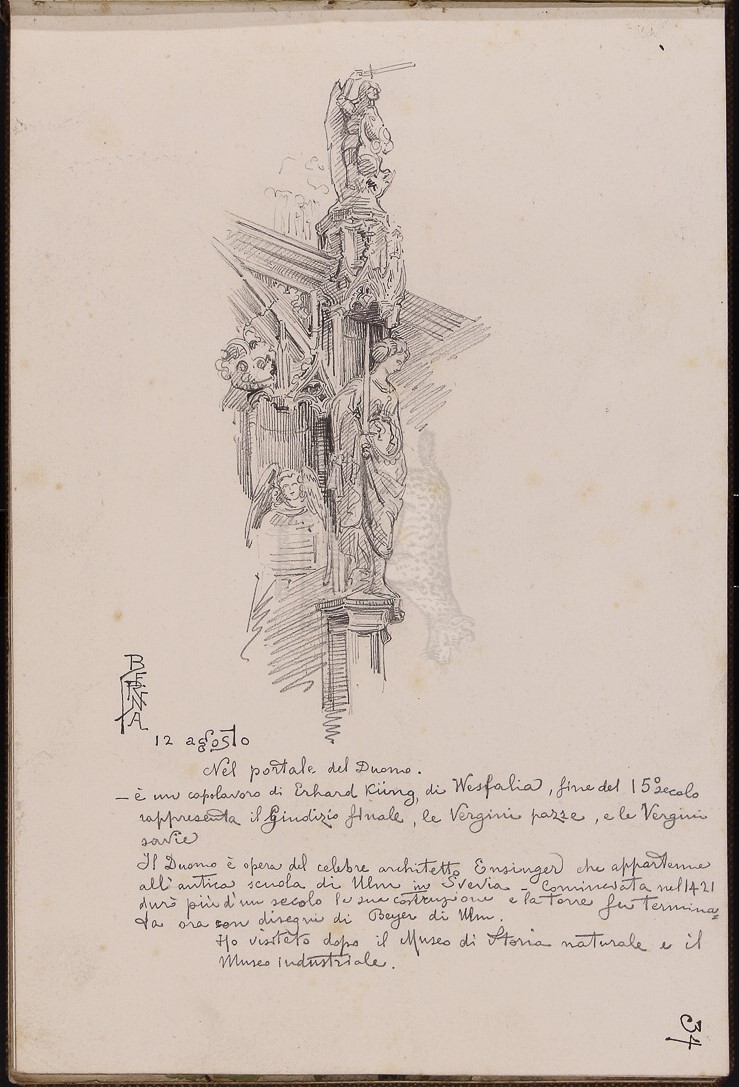 BERNA
12 agosto
Nel portale del Duomo.
— è un capolavoro di Erhard Küng, di Wesfalia, fine del 15º secolo
rappresenta il Giudizio finale, le Vergini pazze, e le Vergini
savie
Il Duomo è opera del celebre architetto Ensinger che appartenne
all'antica scuola di Ulm in Svevia - Cominciata nel 1421
durò più d'un secolo la sua costruzione e la torre fu termina=
ta ora con disegni di Beyer di Ulm.
Ho visitato dopo il Museo di Storia naturale e il
Museo industriale.
37